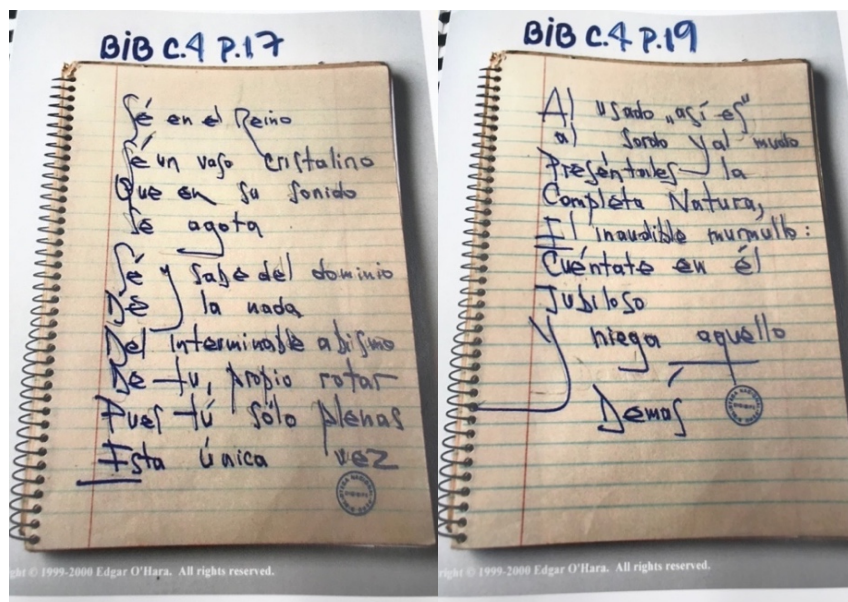 BiB C.4 P.17
Sé en el Reino
Sé un vaso cristalino
Que en su sonido
Se agota
Sé y sabe del dominio
De la nada
Del Interminable abismo
De tu propio rotar
Pues tú sólo plenas
Esta única vez
ght © 1999-2000 Edgar O'Hara. All rights reserved.
BiB C.4 P.19
Al usado „así es"
al sordo y al mudo
Preséntales la
Completa Natura,
El inaudible murmullo:
Cuéntate en él
Jubiloso
Y niega aquello
Demás
right © 1999-2000 Edgar O'Hara. All rights reserved.